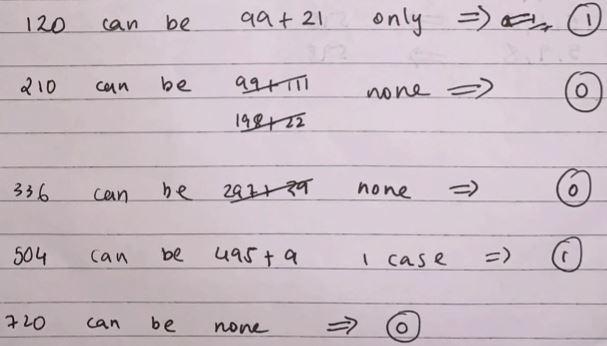 120 can be 99+21 only ⇒ 1
210 can be 99+111 none ⇒ 0
198+22
336 can be 297+39 none ⇒ 0
504 can be 495+9 1 case ⇒ 1
720 can be none ⇒ 0